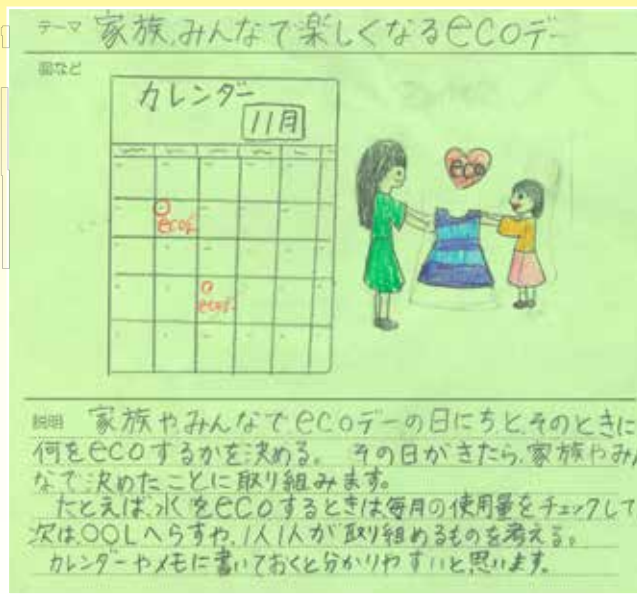 テーマ 家族、みんなで楽しくなるecoデー
図など
カレンダー
11月
eco
ecoデー
ecoデー
説明 家族やみんなでecoデーの日にちと、そのときに
何をecoするかを決める。 その日がきたら、家族やみん
なで決めたことに取り組みます。
たとえば、水をecoするときは毎月の使用量をチェックして
次は〇〇Lへらすや、1人1人が取り組めるものを考える。
カレンダーやメモに書いておくと分かりやすいと思います。